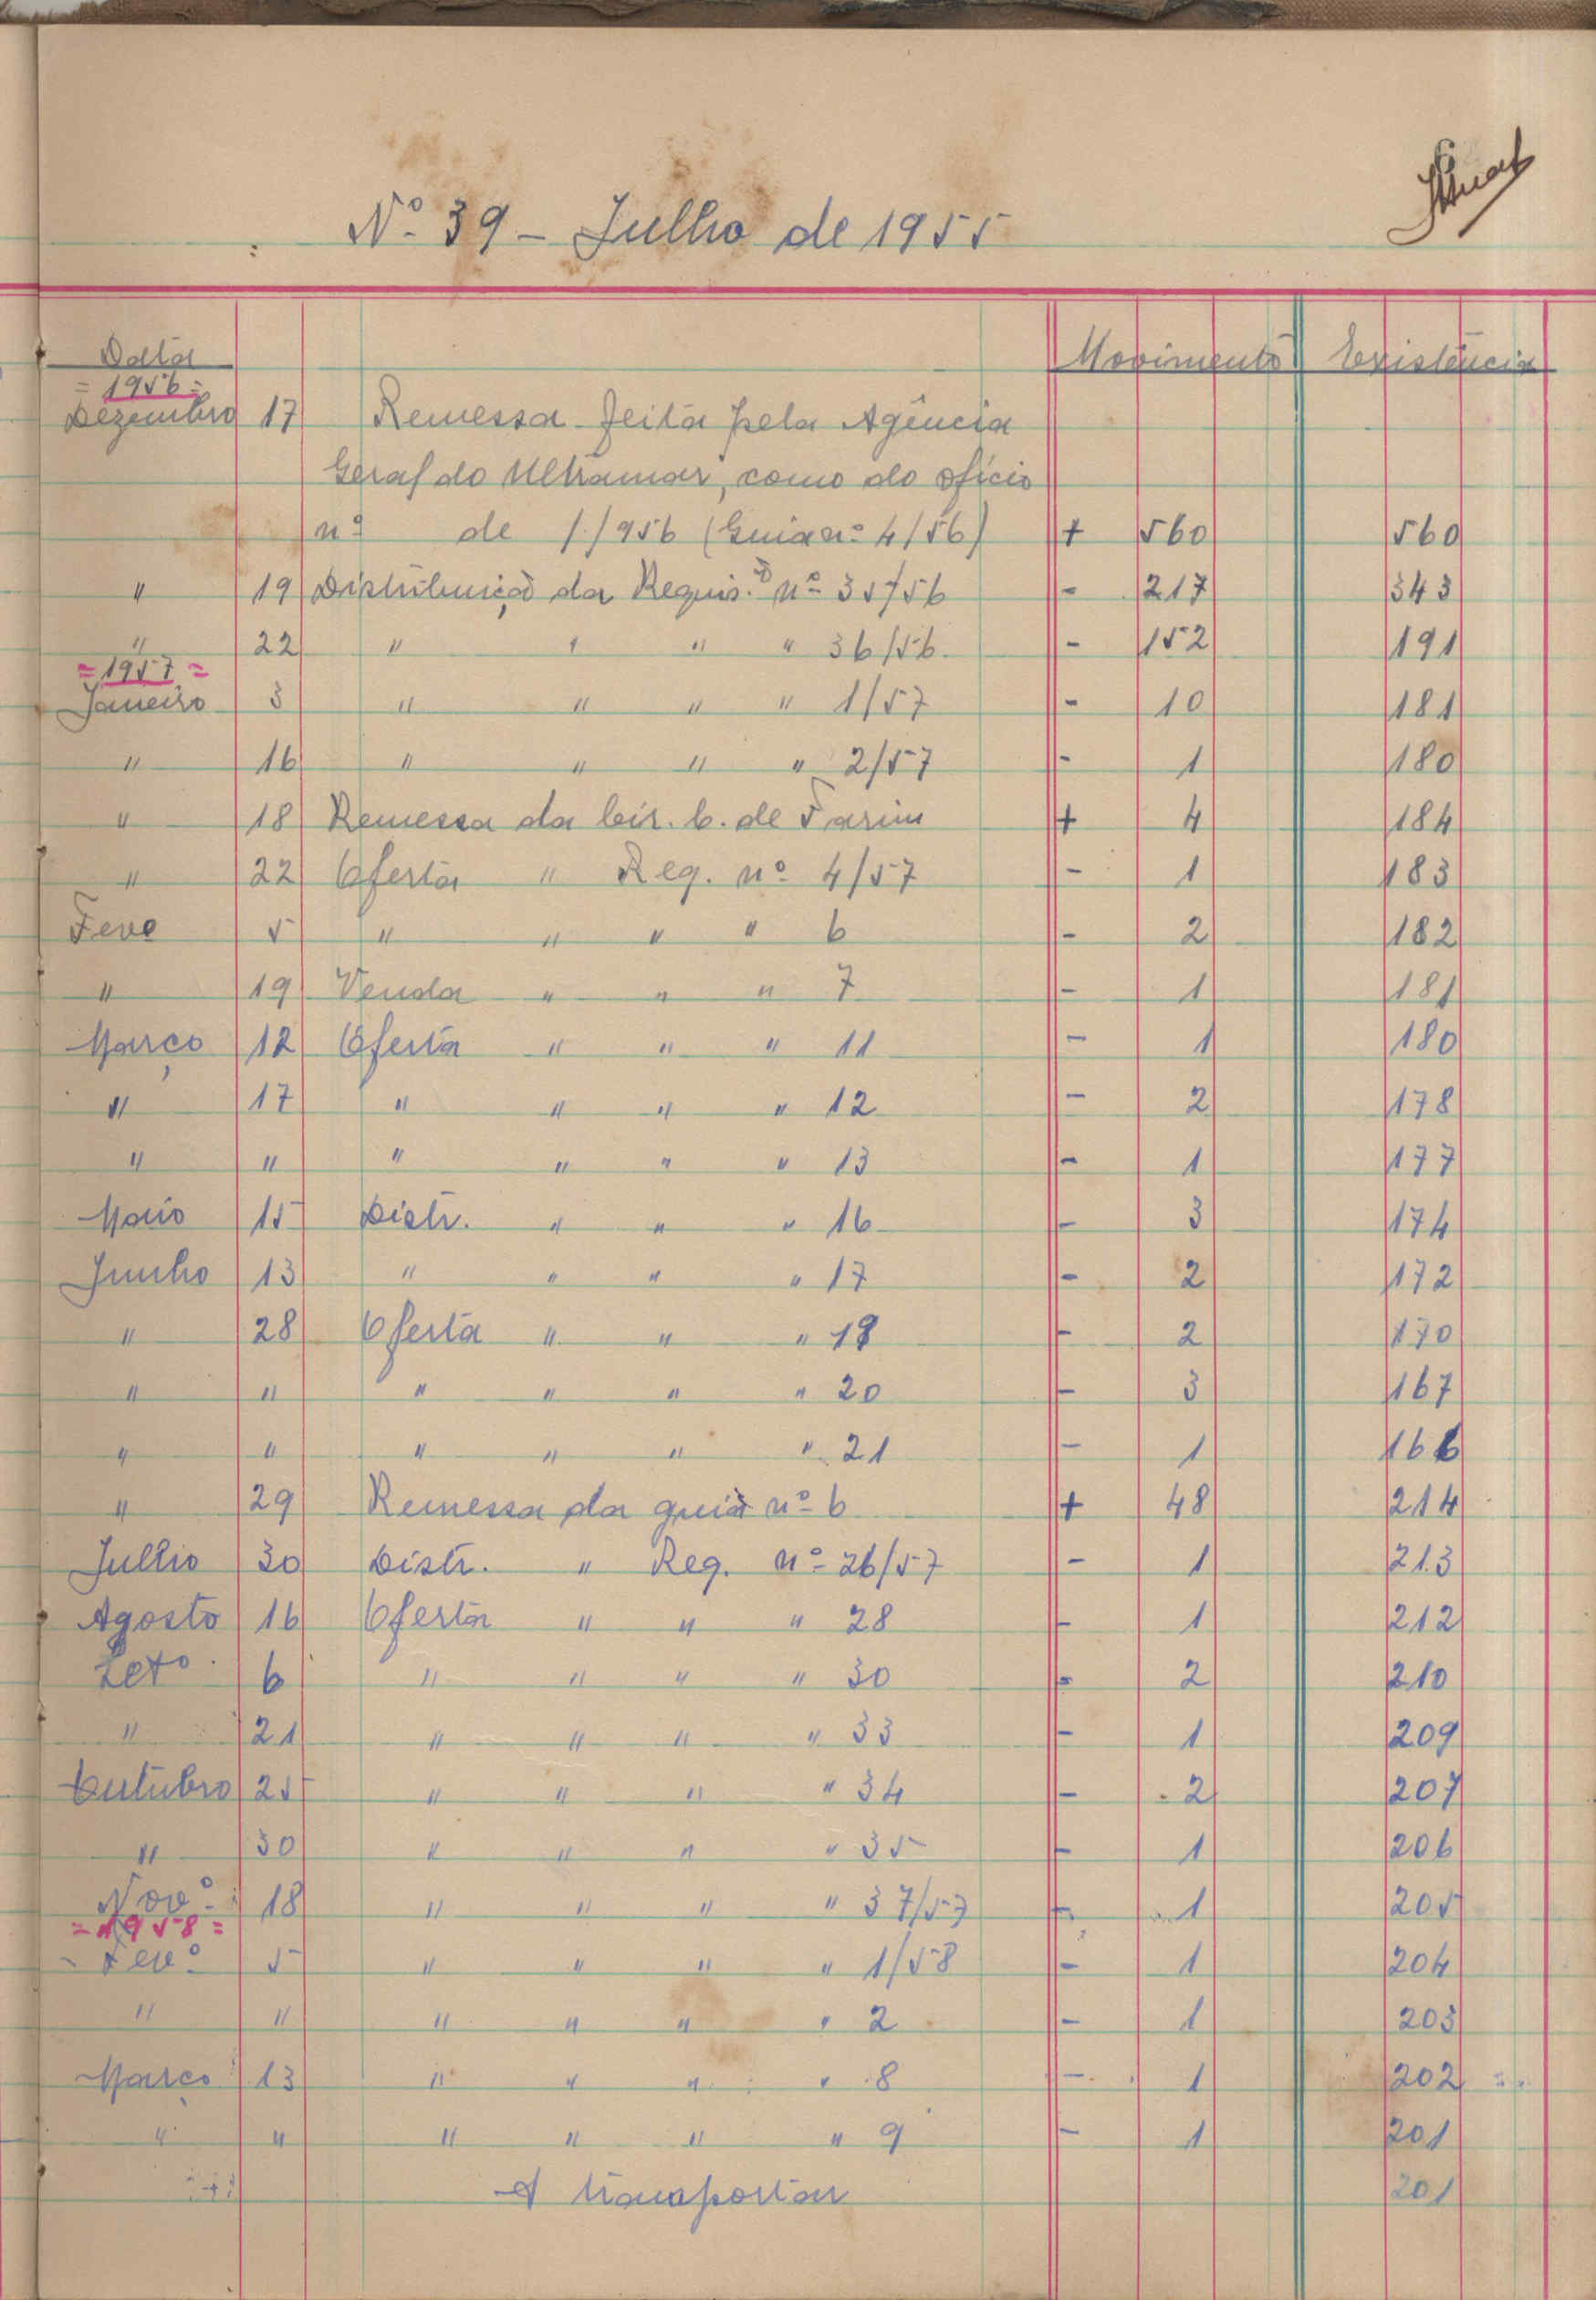 Nº 39 - Julho de 1955
Data Movimento Existência
= 1956 =
Dezembro 17 Remessa feita pela Agência
Geral do Ultramar, como do ofício
nº de / /956 (Guia nº 4/56) + 560 560
" 19 Distribuição da Requis.ão nº 35/56 - 217 343
" 22 " " " " 36/56 - 152 191
= 1957 =
Janeiro 3 " " " " 1/57 - 10 181
" 16 " " " " 2/57 - 1 180
" 18 Remessa da Cir. C. de Farim + 4 184
" 22 Oferta " Req. nº 4/57 - 1 183
Fevº 5 " " " " 6 - 2 182
" 19 Venda " " " 7 - 1 181
Março 12 Oferta " " " 11 - 1 180
" 17 " " " " 12 - 2 178
" " " " " " 13 - 1 177
Maio 15 Distr. " " " 16 - 3 174
Junho 13 " " " " 17 - 2 172
" 28 Oferta " " " 19 - 2 170
" " " " " " 20 - 3 167
" " " " " " 21 - 1 166
" 29 Remessa da guia nº 6 + 48 214
Julho 30 Distr. " Req. nº 26/57 - 1 213
Agosto 16 Oferta " " " 28 - 1 212
Setº 6 " " " " 30 - 2 210
" 21 " " " " 33 - 1 209
Outubro 25 " " " " 34 - 2 207
" 30 " " " " 35 - 1 206
Novº 18 " " " " 37/57 - 1 205
= 1958 =
Fevº 5 " " " " 1/58 - 1 204
" " " " " " 2 - 1 203
Março 13 " " " " 8 - 1 202
" " " " " " 9 - 1 201
A transportar 201